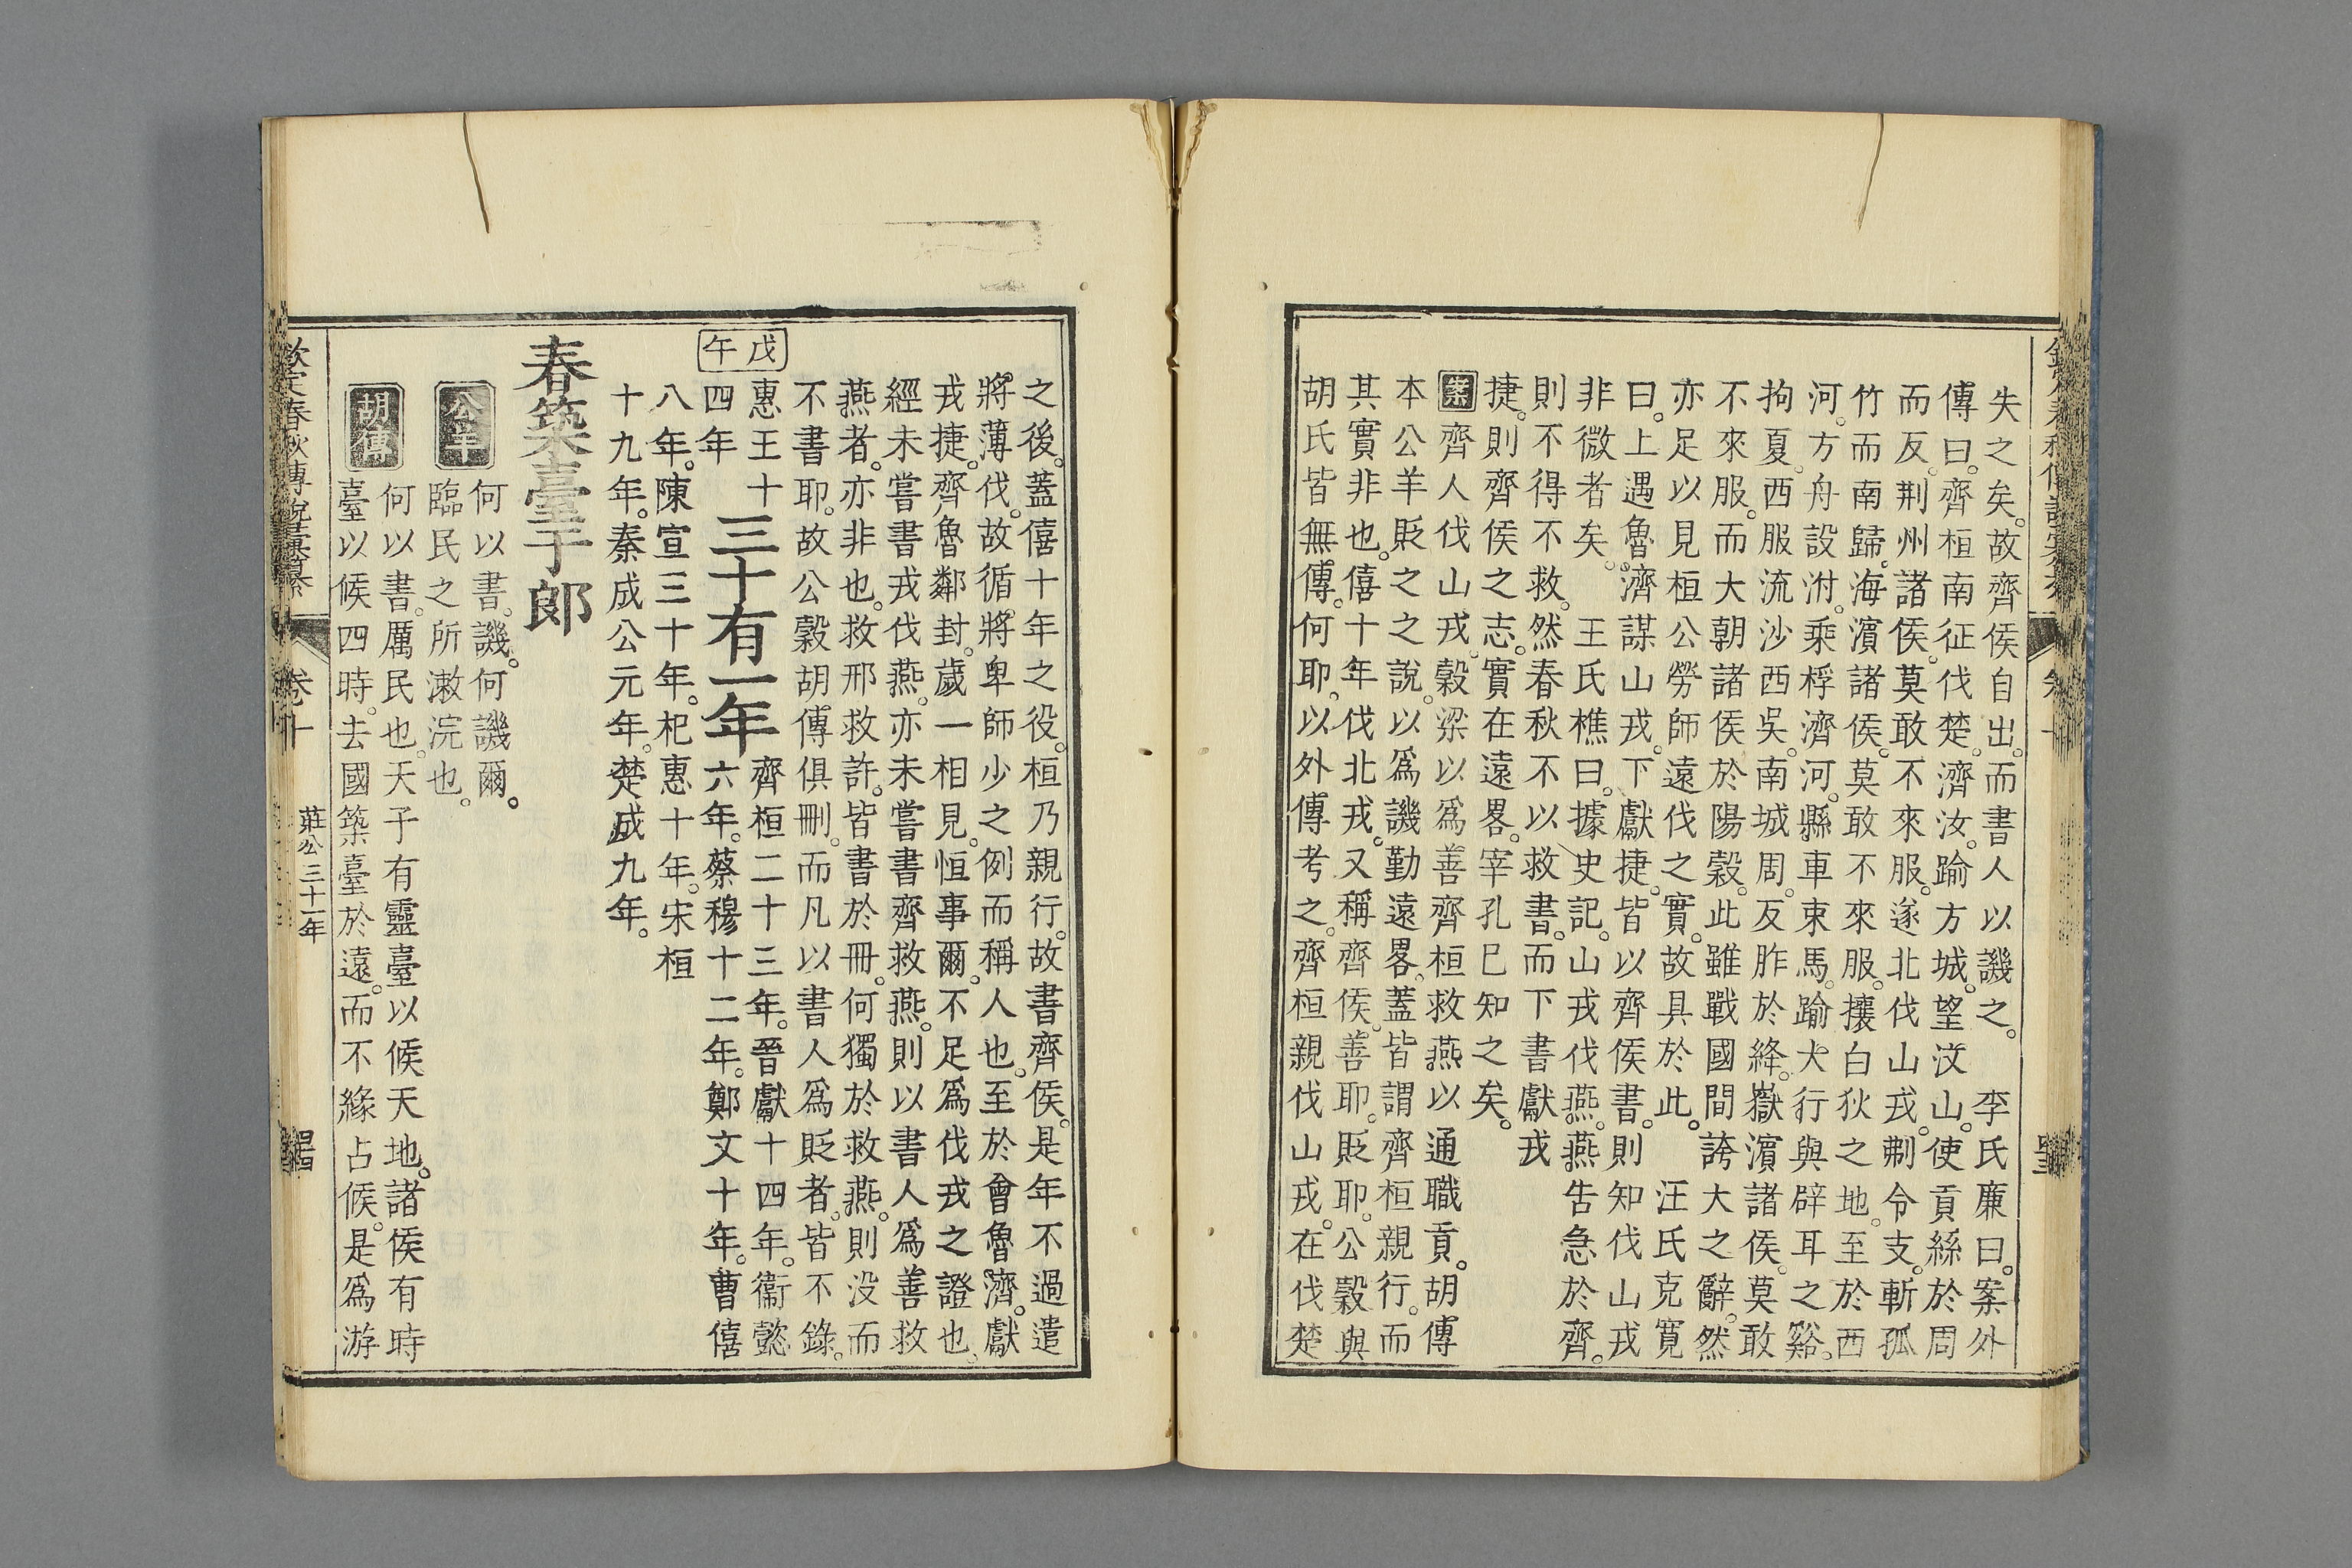 失之矣。故齊侯自出。而書人以譏之。　李氏廉曰。案外
傳曰。齊桓南征伐楚。濟汝。踰方城。望汶山。使貢絲於周
而反。荆州諸侯。莫敢不來服。遂北伐山戎。刜令支。斬孤
竹而南歸。海濱諸侯。莫敢不來服。攘白狄之地。至於西
河。方舟設泭。乘桴濟河。縣車束馬。踰大行與辟耳之谿。
拘夏。西服流沙西吳。南城周。反胙於絳。嶽濱諸侯。莫敢
不來服。而大朝諸侯於陽穀。此雖戰國間誇大之辭。然
亦足以見桓公勞師遠伐之實。故具於此。　汪氏克寬
曰。上遇魯濟。謀山戎。下獻捷。皆以齊侯書。則知伐山戎
非微者矣。　王氏樵曰。據史記。山戎伐燕。燕告急於齊。
則不得不救。然春秋不以救書。而下書獻戎
捷。則齊侯之志。實在遠畧。宰孔已知之矣。
案齊人伐山戎。穀梁以爲善齊桓救燕以通職貢。胡傳
本公羊貶之之說。以爲譏勤遠畧。蓋皆謂齊桓親行。而
其實非也。僖十年伐北戎。又稱齊侯。善耶。貶耶。公穀與
胡氏皆無傳。何耶。以外傳考之。齊桓親伐山戎。在伐楚
之後。蓋僖十年之役。桓乃親行。故書齊侯。是年不過遣
將薄伐。故循將卑師少之例而稱人也。至於會魯濟。獻
戎捷。齊魯鄰封。歲一相見。恒事爾。不足爲伐戎之證也。
經未嘗書戎伐燕。亦未嘗書齊救燕。則以書人爲善救
燕者。亦非也。救邢救許。皆書於冊。何獨於救燕。則没而
不書耶。故公穀胡傳俱刪。而凡以書人爲貶者。皆不錄。
戊午
惠王十四年三十有一年齊桓二十三年。晉獻十四年。衞懿八年。
六年。蔡穆十二年。鄭文十年。曹僖
八年。陳宣三十年。杞惠十年。宋桓
十九年。秦成公元年。楚成九年。
春築臺于郎
公羊
何以書。譏。何譏爾。
臨民之所漱浣也。
胡傳
何以書。厲民也。天子有靈臺以候天地。諸侯有時
臺以候四時。去國築臺於遠。而不緣占候。是爲游
欽定春秋傳說彙纂
卷十
莊公三十一年